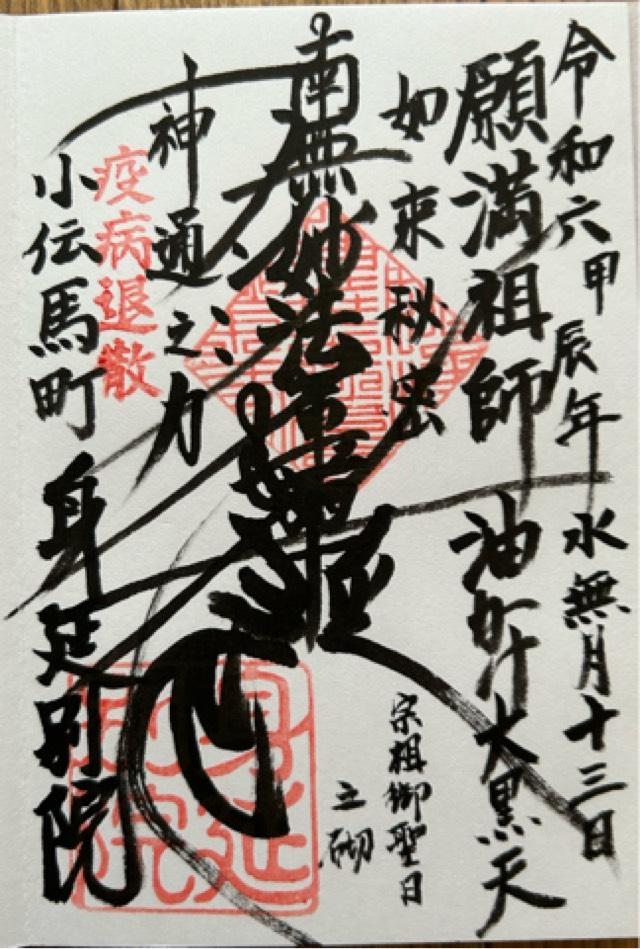 令和六甲辰年 水無月十三日
願満祖師 油かけ大黒天
如来秘密
宗祖御聖日
之砌
南無妙法蓮華経
神通之力
疫病退散
小伝馬町 身延別院